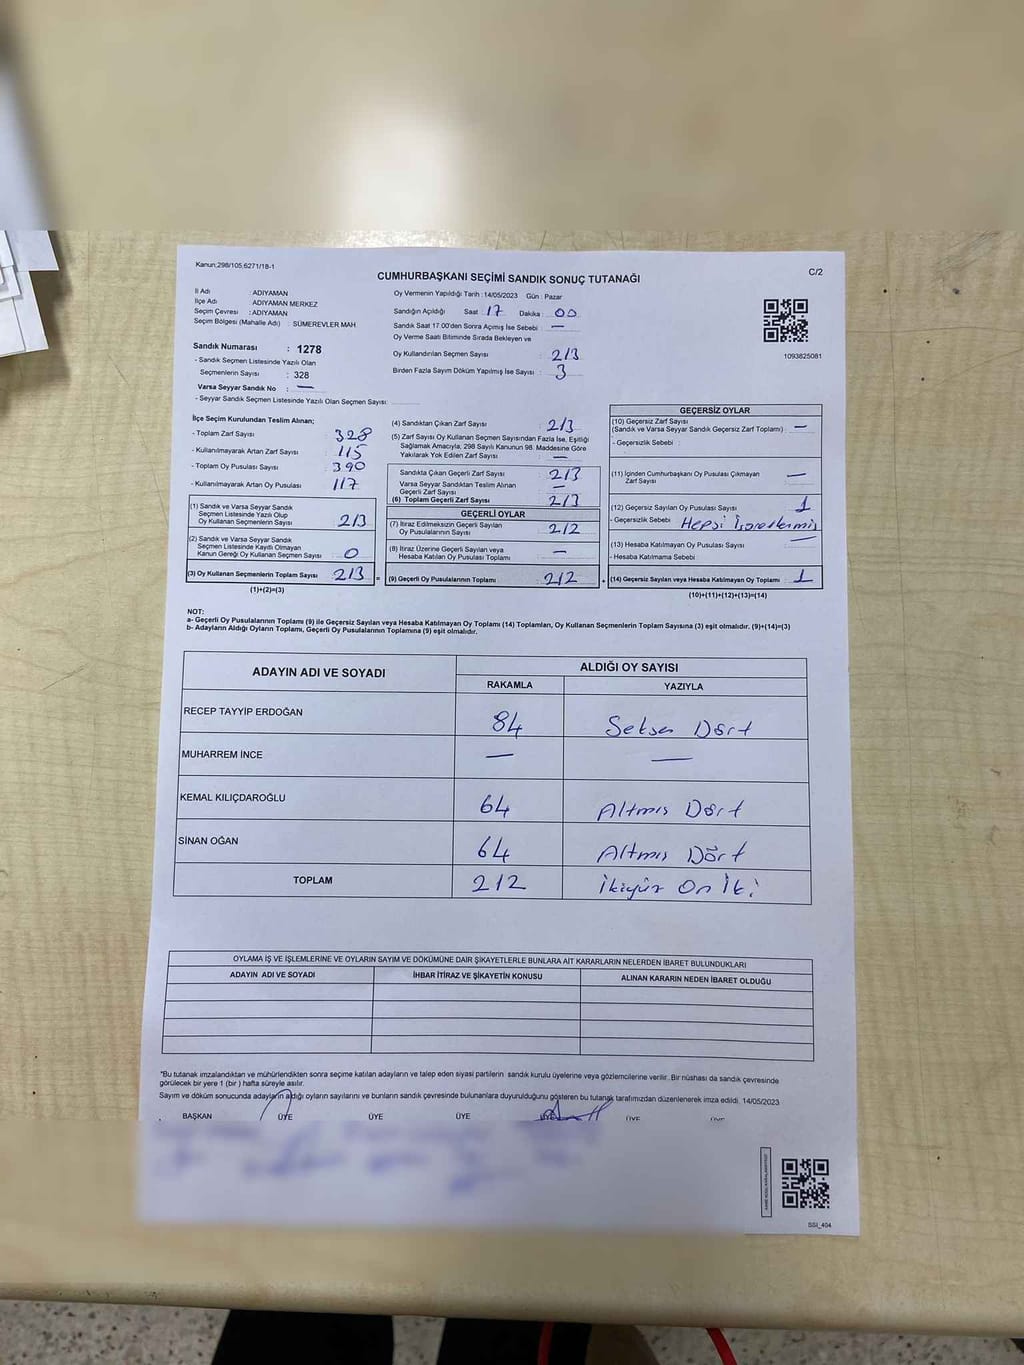 Kanun;298/105;6271/18-1
C/2
CUMHURBAŞKANI SEÇİMİ SANDIK SONUÇ TUTANAĞI
İl Adı : ADIYAMAN
İlçe Adı : ADIYAMAN MERKEZ
Seçim Çevresi : ADIYAMAN
Seçim Bölgesi (Mahalle Adı) : SÜMEREVLER MAH.
Sandık Numarası : 1278
- Sandık Seçmen Listesinde Yazılı Olan
Seçmenlerin Sayısı : 328
Varsa Seyyar Sandık No : —
- Seyyar Sandık Seçmen Listesinde Yazılı Olan Seçmen Sayısı:
Oy Vermenin Yapıldığı Tarih : 14/05/2023 Gün : Pazar
Sandığın Açıldığı Saat : 17 Dakika : 00
Sandık Saat 17.00'den Sonra Açımış İse Sebebi : —
Oy Verme Saati Bitiminde Sırada Bekleyen ve
Oy Kullandırılan Seçmen Sayısı : 213
Birden Fazla Sayım Döküm Yapılmış İse Sayısı : 3
1093825081
İlçe Seçim Kurulundan Teslim Alınan;
- Toplam Zarf Sayısı : 328
- Kullanılmayarak Artan Zarf Sayısı : 115
- Toplam Oy Pusulası Sayısı : 390
- Kullanılmayarak Artan Oy Pusulası : 117
(1) Sandık ve Varsa Seyyar Sandık
Seçmen Listesinde Yazılı Olup
Oy Kullanan Seçmenlerin Sayısı : 213
(2) Sandık ve Varsa Seyyar Sandık
Seçmen Listesinde Kayıtlı Olmayan
Kanun Gereği Oy Kullanan Seçmen Sayısı : 0
(3) Oy Kullanan Seçmenlerin Toplam Sayısı : 213
(1)+(2)=(3)
(4) Sandıktan Çıkan Zarf Sayısı : 213
(5) Zarf Sayısı Oy Kullanan Seçmen Sayısından Fazla İse, Eşitliği
Sağlamak Amacıyla, 298 Sayılı Kanunun 98. Maddesine Göre
Yakılarak Yok Edilen Zarf Sayısı : —
Sandıkta Çıkan Geçerli Zarf Sayısı : 213
Varsa Seyyar Sandıktan Teslim Alınan
Geçerli Zarf Sayısı : —
(6) Toplam Geçerli Zarf Sayısı : 213
GEÇERLİ OYLAR
(7) İtiraz Edilmeksizin Geçerli Sayılan
Oy Pusulasının Sayısı : 212
(8) İtiraz Üzerine Geçerli Sayılan veya
Hesaba Katılan Oy Pusulası Toplamı : —
=
(9) Geçerli Oy Pusulalarının Toplamı : 212
+
GEÇERSİZ OYLAR
(10) Geçersiz Zarf Sayısı
(Sandık ve Varsa Seyyar Sandık Geçersiz Zarf Toplamı) : —
- Geçersizlik Sebebi :
(11) İçinden Cumhurbaşkanı Oy Pusulası Çıkmayan
Zarf Sayısı : —
(12) Geçersiz Sayılan Oy Pusulası Sayısı : 1
- Geçersizlik Sebebi : Hepsi İşaretlermiş
(13) Hesaba Katılmayan Oy Pusulası Sayısı : —
- Hesaba Katılmama Sebebi
(14) Geçersiz Sayılan veya Hesaba Katılmayan Oy Toplamı : 1
(10)+(11)+(12)+(13)=(14)
NOT:
a- Geçerli Oy Pusulalarının Toplamı (9) ile Geçersiz Sayılan veya Hesaba Katılmayan Oy Toplamı (14) Toplamları, Oy Kullanan Seçmenlerin Toplam Sayısına (3) eşit olmalıdır. (9)+(14)=(3)
b- Adayların Aldığı Oyların Toplamı, Geçerli Oy Pusulalarının Toplamına (9) eşit olmalıdır.
ADAYIN ADI VE SOYADI
ALDIĞI OY SAYISI
RAKAMLA YAZIYLA
RECEP TAYYİP ERDOĞAN 84 Seksen Dört
MUHARREM İNCE — —
KEMAL KILIÇDAROĞLU 64 Altmış Dört
SİNAN OĞAN 64 Altmış Dört
TOPLAM 212 İkiyüz On İki
OYLAMA İŞ VE İŞLEMLERİNE VE OYLARIN SAYIM VE DÖKÜMÜNE DAİR ŞİKAYETLERLE BUNLARA AİT KARARLARIN NELERDEN İBARET BULUNDUKLARI
ADAYIN ADI VE SOYADI İHBAR İTİRAZ VE ŞİKAYETİN KONUSU ALINAN KARARIN NEDEN İBARET OLDUĞU
*Bu tutanak imzalandıktan ve mühürlendikten sonra seçime katılan adayların ve talep eden siyasi partilerin sandık kurulu üyelerine veya gözlemcilerine verilir. Bir nüshası da sandık çevresinde
görülecek bir yere 1 (bir ) hafta süreyle asılır.
Sayım ve döküm sonucunda adayların aldığı oyların sayılarını ve bunların sandık çevresinde bulunanlara duyurulduğunu gösteren bu tutanak tarafımızdan düzenlenerek imza edildi. 14/05/2023
BAŞKAN ÜYE ÜYE ÜYE ÜYE ÜYE ÜYE
SSİ_404